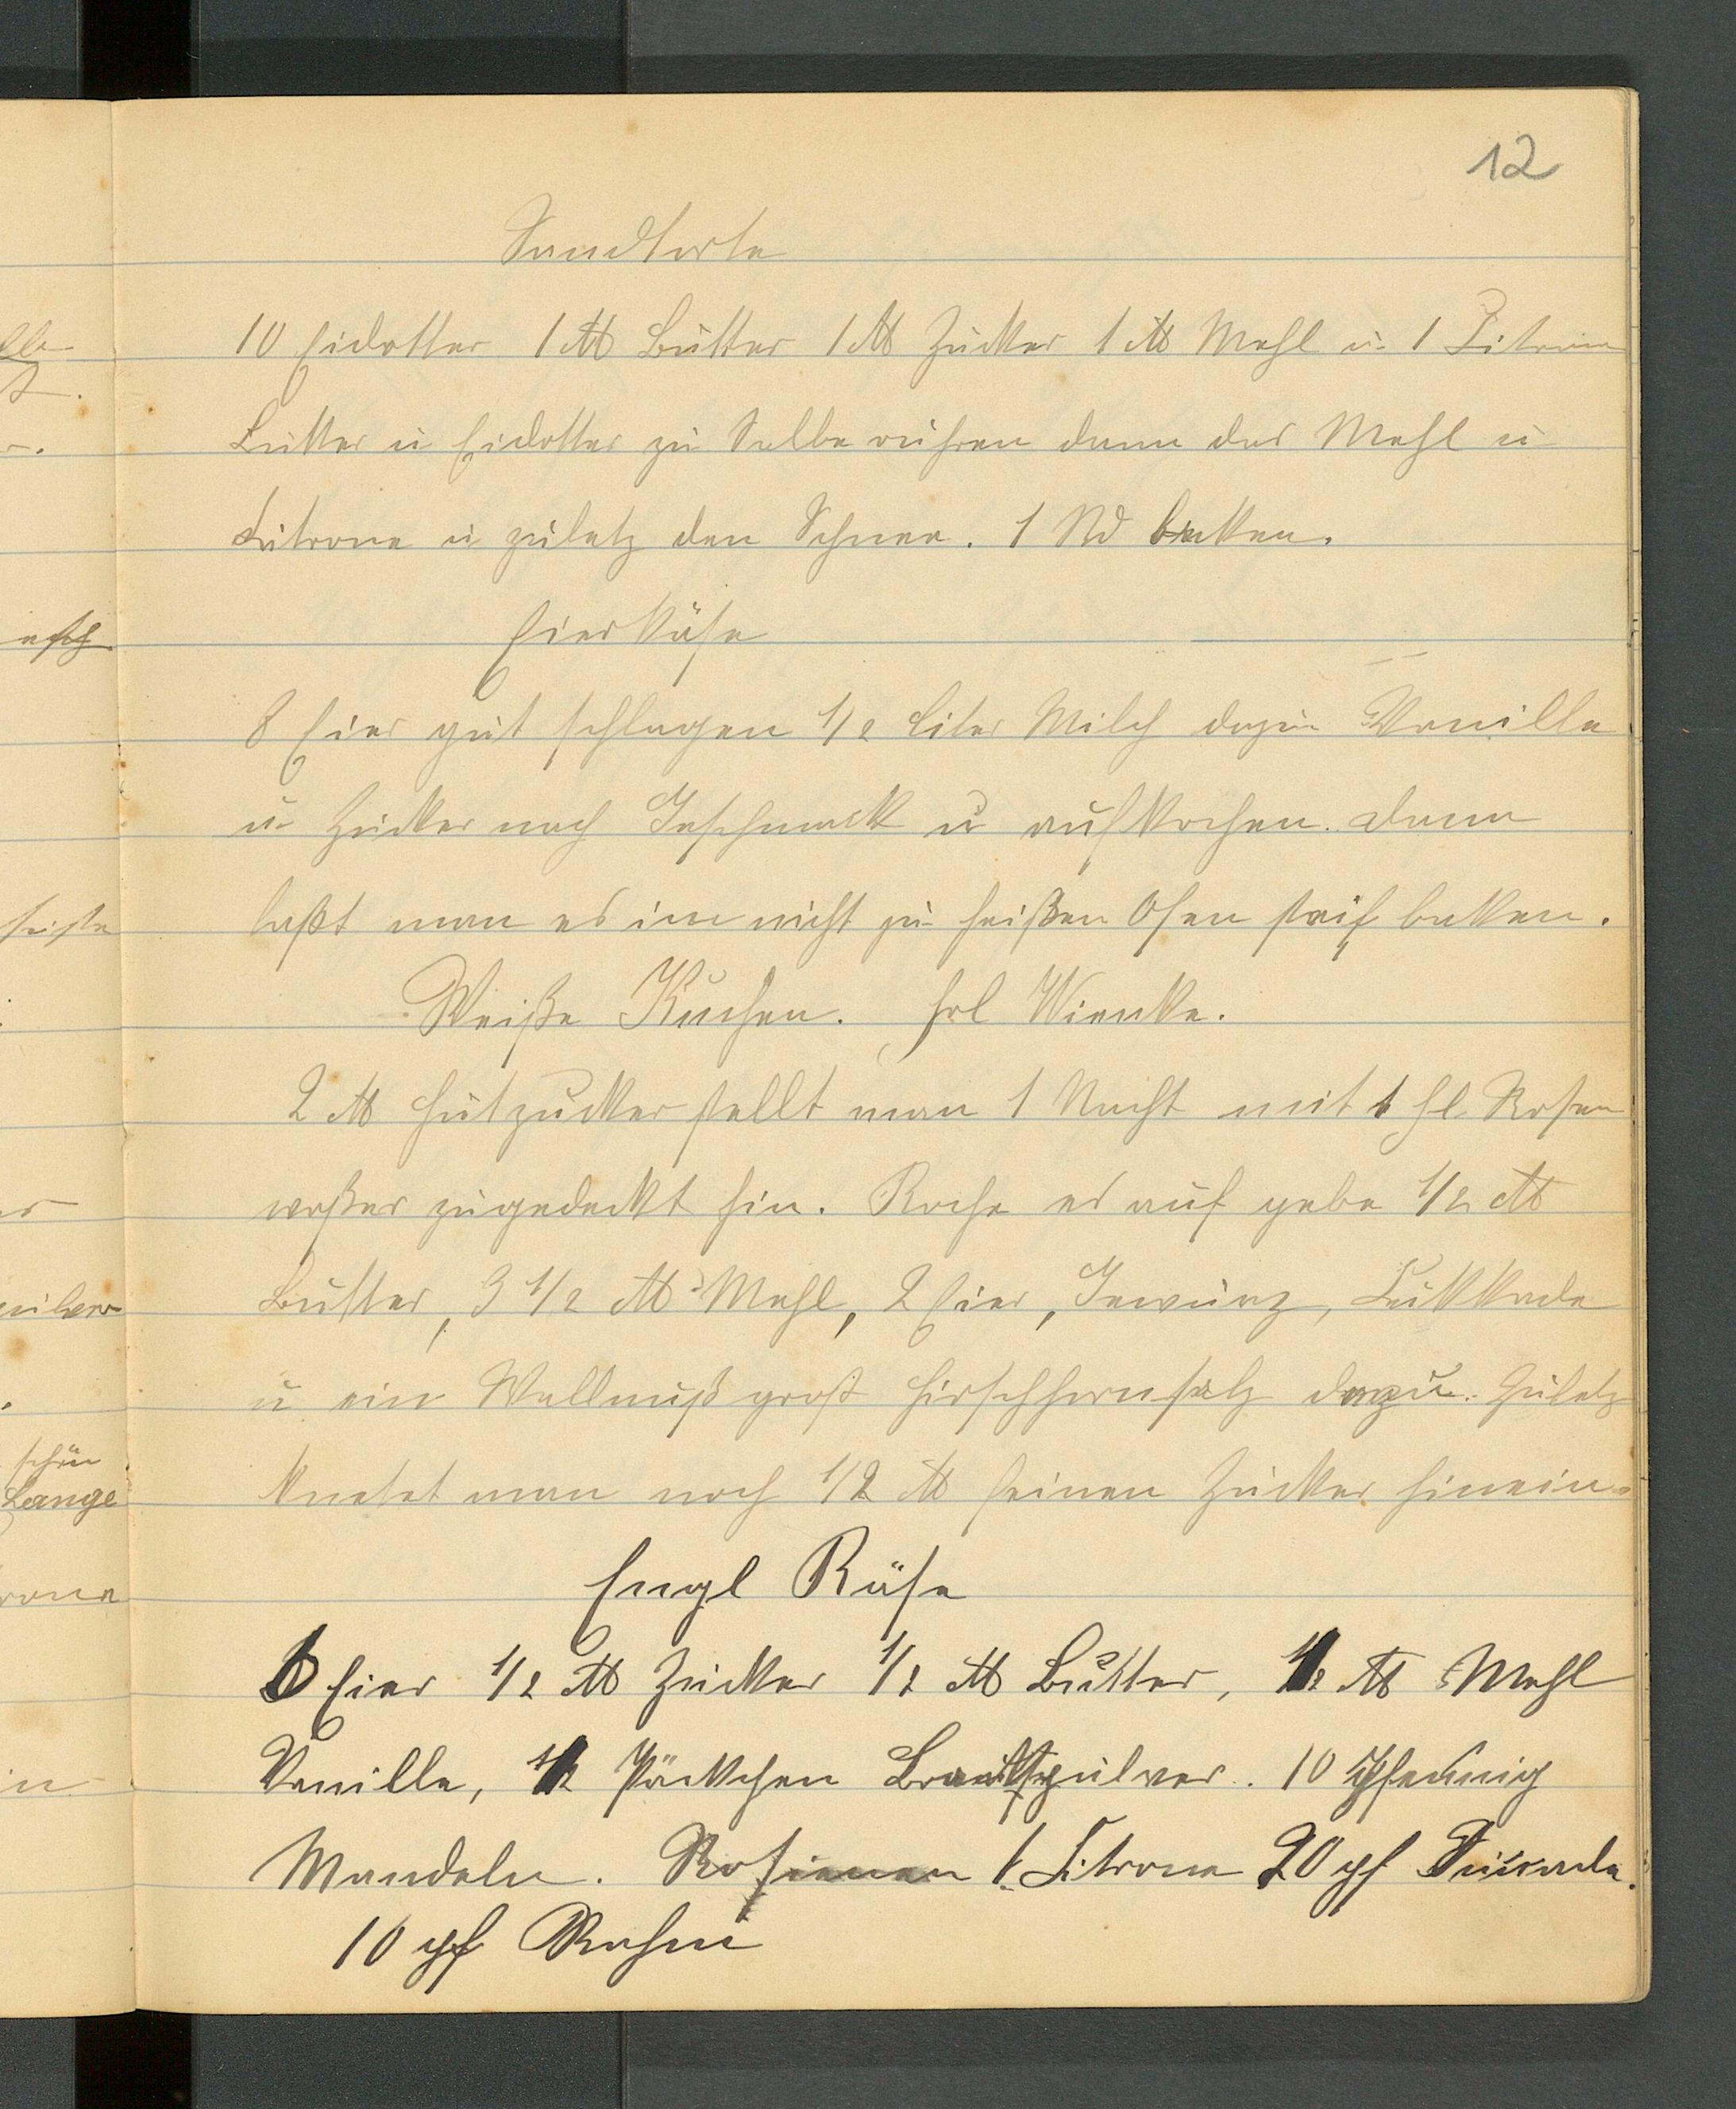 12
Sandtorte
10 Eidotter 1 ℔ Butter 1 ℔ Zucker 1 ℔ Mehl u. 1 Zitrone
Butter u Eidotter zu Salbe rühren dann das Mehl u
Zitrone u zuletz den Schnee. 1 Std backen.
Eierkäse
8 Eier gut schlagen 1/2 Liter Milch dazu Vanille
u Zucker nach Geschmack u aufkochen. dann
laßt man es im nicht zu heißen Ofen steif backen.
Weiße Kuchen. Frl Wienke.
2 ℔ Hutzucker stellt man 1 Nacht mit 1 Fl. Rosen
waßer zugedeckt hin. Koche es auf gebe 1/2 ℔
Butter, 3 1/2 ℔ Mehl, 2 Eier, Gewürz, Sukkade
u ein Wallnuß groß Hirschhornsalz dazu. Zuletz
knetet man noch 1/2 ℔ feinen Zucker hinein.
Engl Käse
6 Eier 1/2 ℔ Zucker 1/2 ℔ Butter, 1/2 ℔ Mehl
Vanille, 1/2 Päckchen 10 Pfennig
Mandeln. Rosienen 1 Zitrone 20 pf
10 pf
schön
Lange